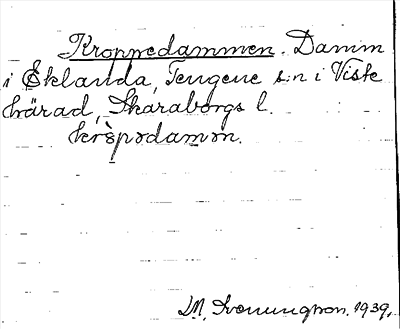 Kroppedammen. Damm
i Eklanda, Tengene s:n i Viste
härad, Skaraborgs l.
krȯ̀pədamən.
M. Svenungson. 1939.